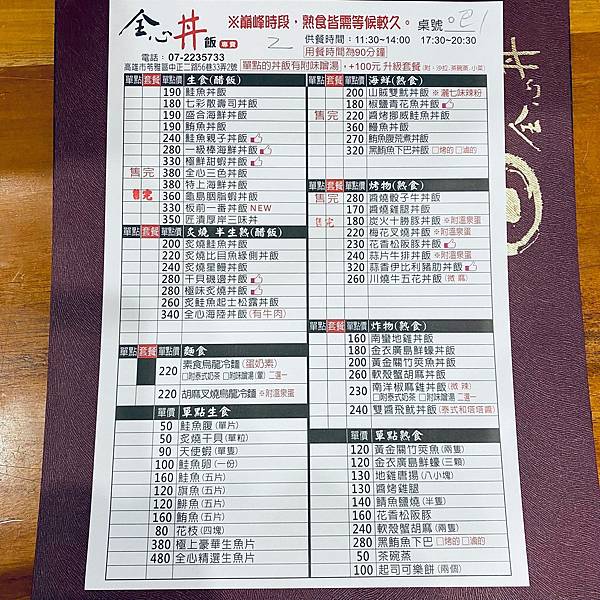 全心丼飯 專賣
※巔峰時段，熟食皆需等候較久。
桌號 吧1
2
供餐時間：11:30~14:00　17:30~20:30
用餐時間為90分鐘
電話：07-2235733
高雄市苓雅區中正二路56巷33弄2號
單點的丼飯有附味噌湯，+100元 升級套餐(附，沙拉.茶碗蒸.小菜)
單點 套餐 單點價 生食(醋飯)
190 鮭魚丼飯
180 七彩散壽司丼飯
190 盛合海鮮丼飯
190 鮪魚丼飯
240 鮭魚親子丼飯
280 一級棒海鮮丼飯
330 極鮮甜蝦丼飯
售完 380 全心三色丼飯
380 特上海鮮丼飯
售完 360 龜島胭脂蝦丼飯
330 板前一番丼飯 NEW
350 匠漬厚岸三味丼
單點 套餐 單點價 炙燒 半生熟(醋飯)
200 炙燒鮭魚丼飯
220 炙燒比目魚緣側丼飯
240 炙燒星鰻丼飯
280 干貝磯邊丼飯
280 極味炙燒丼飯
260 炙鮭魚起士松露丼飯
340 全心海陸丼飯(有牛肉)
單點 套餐 單點價 麵食
220 素食烏龍冷麵(蛋奶素)
□附泰式奶茶 □附味噌湯(葷) 二選一
220 胡麻叉燒烏龍冷麵 ※附溫泉蛋
單價 單點生食
50 鮭魚腹(單片)
50 炙燒干貝(單粒)
90 天使蝦(單隻)
100 鮭魚卵(一份)
160 鮭魚(五片)
120 旗魚(五片)
120 鯡魚(五片)
160 鮪魚(五片)
80 花枝(四塊)
380 極上豪華生魚片
480 全心精選生魚片
單點 套餐 單點價 海鮮(熟食)
200 山賊雙魷丼飯 ※灑七味辣粉
180 椒鹽青花魚丼飯
售完 220 醬烤挪威鮭魚丼飯
360 鰻魚丼飯
270 鮪魚腹荒煮丼飯
320 黑鮪魚下巴丼飯 □烤的 □滷的
單點 套餐 單點價 烤物(熟食)
售完 280 醬燒骰子牛丼飯
170 醬燒雞腿丼飯
售完 180 炭火十勝豚丼飯 ※附溫泉蛋
220 梅花叉燒丼飯 ※附溫泉蛋
230 花香松阪豚丼飯
240 蒜片牛排丼飯 ※附溫泉蛋
320 蒜香伊比利豬肋丼飯
260 川燒牛五花丼飯(微 麻)
單點 套餐 單點價 炸物(熟食)
160 南蠻地雞丼飯
180 金衣廣島鮮蠔丼飯
200 黃金關竹莢魚丼飯
260 軟殼蟹胡麻丼飯
230 南洋椒麻雞丼飯(微 辣)
□附泰式奶茶 □附味噌湯 二選一
240 雙醬飛魷丼飯(泰式和塔塔醬)
單價 單點熟食
120 黃金關竹莢魚(兩隻)
120 金衣廣島鮮蠔(三顆)
130 地雞唐揚(八小塊)
130 醬烤雞腿
140 鯖魚鹽燒(半隻)
160 花香松阪豚
240 軟殼蟹胡麻(兩隻)
280 黑鮪魚下巴 □烤的 □滷的
50 茶碗蒸
100 起司可樂餅(兩個)
全心丼